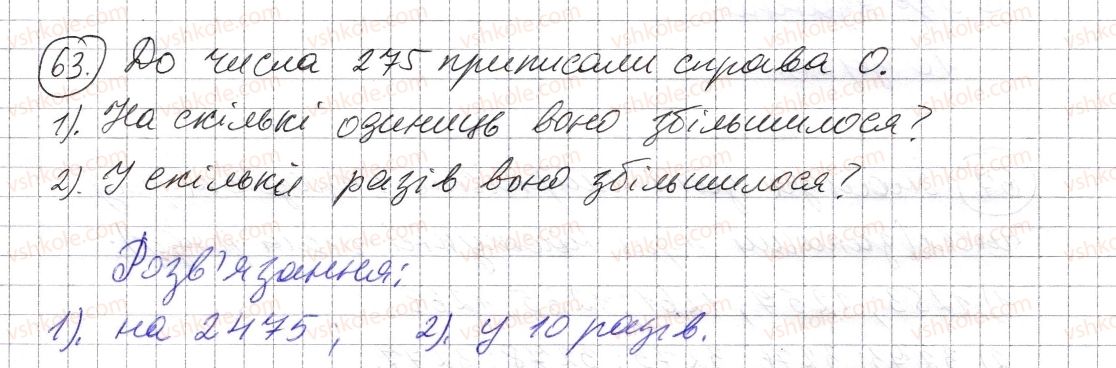 63. До числа 275 приписали справа 0.
1). На скількі одиниць воно збільшилося?
2). У скільки разів воно збільшилося?
Розв'язання:
1). на 2475; 2). у 10 разів.